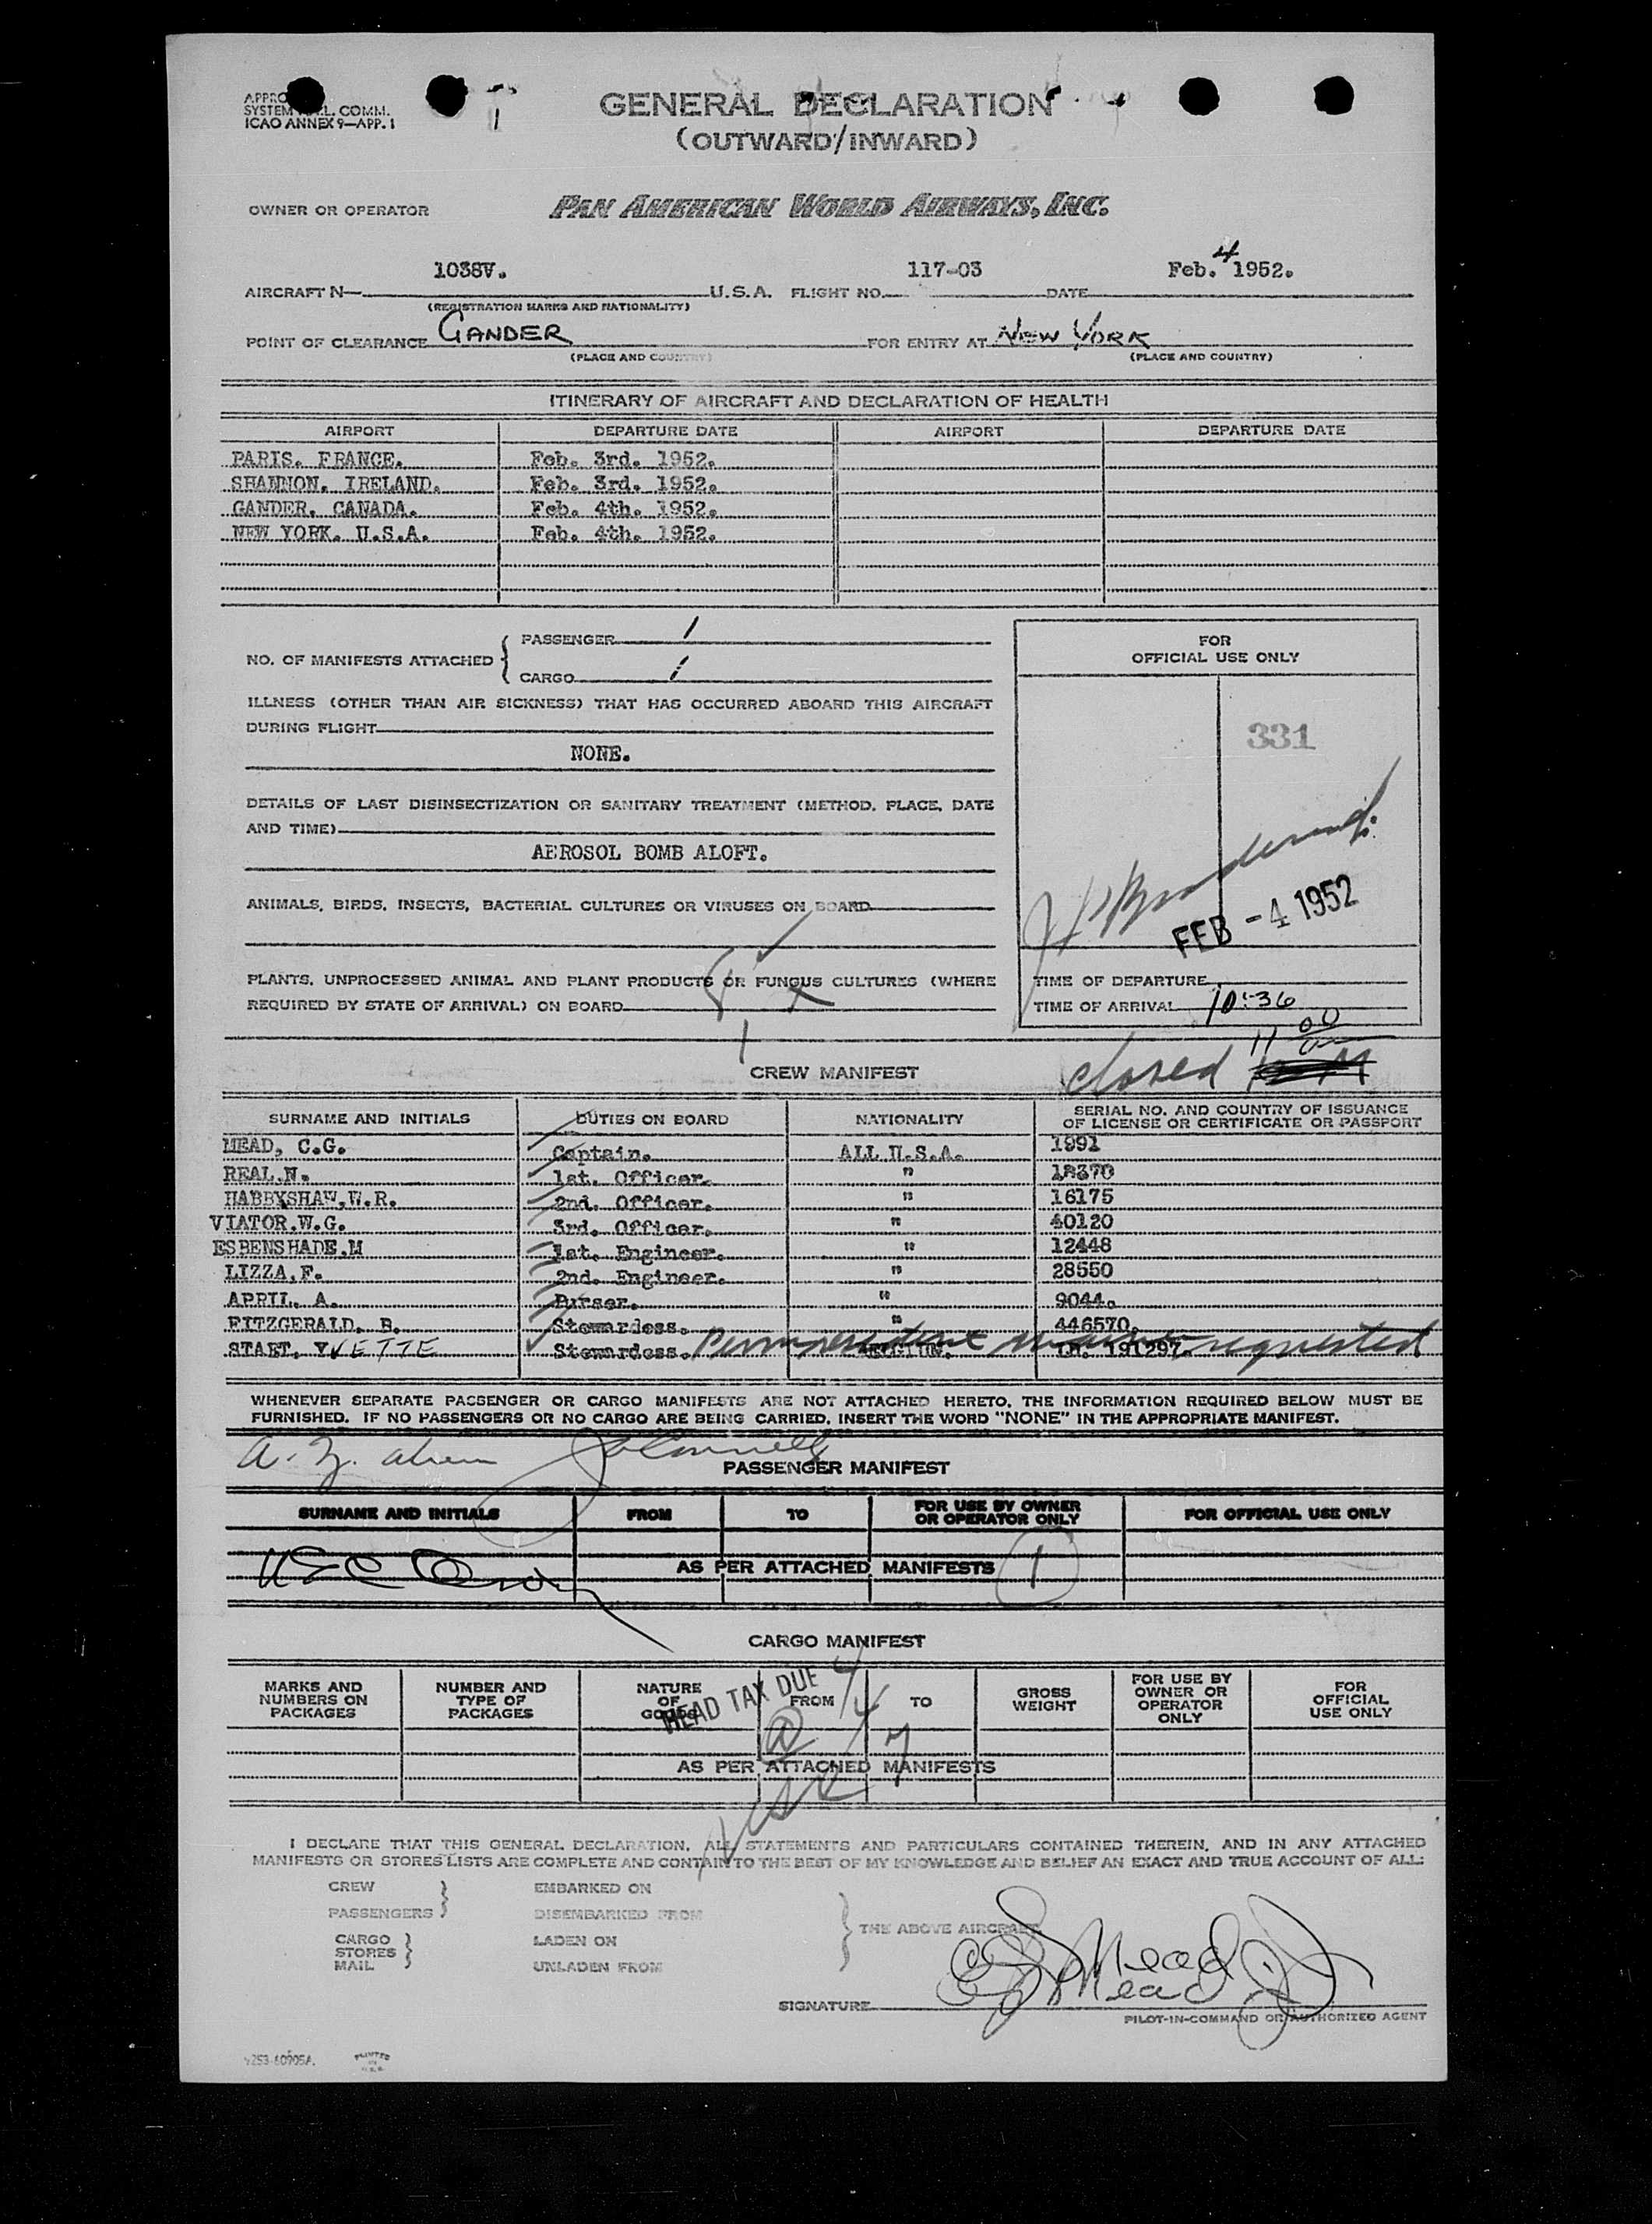 GENERAL DECLARATION
(OUTWARD/INWARD)
SYSTEM COMM.
ICAO ANNEX 9—APP. 1
OWNER OR OPERATOR PAN AMERICAN WORLD AIRWAYS, INC.
AIRCRAFT N— 1038V. U.S.A. FLIGHT NO. 117-03 DATE Feb. 4 1952.
(REGISTRATION MARKS AND NATIONALITY)
POINT OF CLEARANCE GANDER FOR ENTRY AT NEW YORK
(PLACE AND COUNTRY) (PLACE AND COUNTRY)
ITINERARY OF AIRCRAFT AND DECLARATION OF HEALTH
AIRPORT DEPARTURE DATE AIRPORT DEPARTURE DATE
PARIS. FRANCE. Feb. 3rd. 1952.
SHANNON. IRELAND. Feb. 3rd. 1952.
GANDER. CANADA. Feb. 4th. 1952.
NEW YORK. U.S.A. Feb. 4th. 1952.
NO. OF MANIFESTS ATTACHED
PASSENGER 1
CARGO 1
ILLNESS (OTHER THAN AIR SICKNESS) THAT HAS OCCURRED ABOARD THIS AIRCRAFT
DURING FLIGHT
NONE.
DETAILS OF LAST DISINSECTIZATION OR SANITARY TREATMENT (METHOD, PLACE, DATE
AND TIME)
AEROSOL BOMB ALOFT.
ANIMALS, BIRDS, INSECTS, BACTERIAL CULTURES OR VIRUSES ON BOARD
PLANTS, UNPROCESSED ANIMAL AND PLANT PRODUCTS OR FUNGUS CULTURES (WHERE
REQUIRED BY STATE OF ARRIVAL) ON BOARD
FOR
OFFICIAL USE ONLY
331
FEB -4 1952
TIME OF DEPARTURE
TIME OF ARRIVAL 10:36
closed 11 00
CREW MANIFEST
SURNAME AND INITIALS DUTIES ON BOARD NATIONALITY SERIAL NO. AND COUNTRY OF ISSUANCE
OF LICENSE OR CERTIFICATE OR PASSPORT
MEAD, C.G. Captain. ALL U.S.A. 1991
REAL.N. 1st. Officer. " 18370
HABBYSHAW,W.R. 2nd. Officer. " 16175
VIATOR.W.G. 3rd. Officer. " 40120
ESBENSHADE.M 1st. Engineer. " 12448
LIZZA,F. 2nd. Engineer. " 28550
APRIL. A. Purser. " 9044.
FITZGERALD. B. Stewardess. " 446570.
STAET. YVETTE Stewardess. 191297. requested
WHENEVER SEPARATE PASSENGER OR CARGO MANIFESTS ARE NOT ATTACHED HERETO, THE INFORMATION REQUIRED BELOW MUST BE
FURNISHED. IF NO PASSENGERS OR NO CARGO ARE BEING CARRIED, INSERT THE WORD "NONE" IN THE APPROPRIATE MANIFEST.
PASSENGER MANIFEST
SURNAME AND INITIALS FROM TO FOR USE BY OWNER
OR OPERATOR ONLY FOR OFFICIAL USE ONLY
AS PER ATTACHED MANIFESTS 1
CARGO MANIFEST
MARKS AND
NUMBERS ON
PACKAGES
NUMBER AND
TYPE OF
PACKAGES
NATURE
OF
GOODS
FROM
TO
GROSS
WEIGHT
FOR USE BY
OWNER OR
OPERATOR
ONLY
FOR
OFFICIAL
USE ONLY
HEAD TAX DUE
AS PER ATTACHED MANIFESTS
I DECLARE THAT THIS GENERAL DECLARATION, ALL STATEMENTS AND PARTICULARS CONTAINED THEREIN, AND IN ANY ATTACHED
MANIFESTS OR STORES LISTS ARE COMPLETE AND CONTAIN TO THE BEST OF MY KNOWLEDGE AND BELIEF AN EXACT AND TRUE ACCOUNT OF ALL:
CREW
PASSENGERS
EMBARKED ON
DISEMBARKED FROM
CARGO
STORES
MAIL
LADEN ON
UNLADEN FROM
THE ABOVE AIRCRAFT.
SIGNATURE CG Mead Jr
PILOT-IN-COMMAND OR AUTHORIZED AGENT
PRINTED
IN
U.S.A.